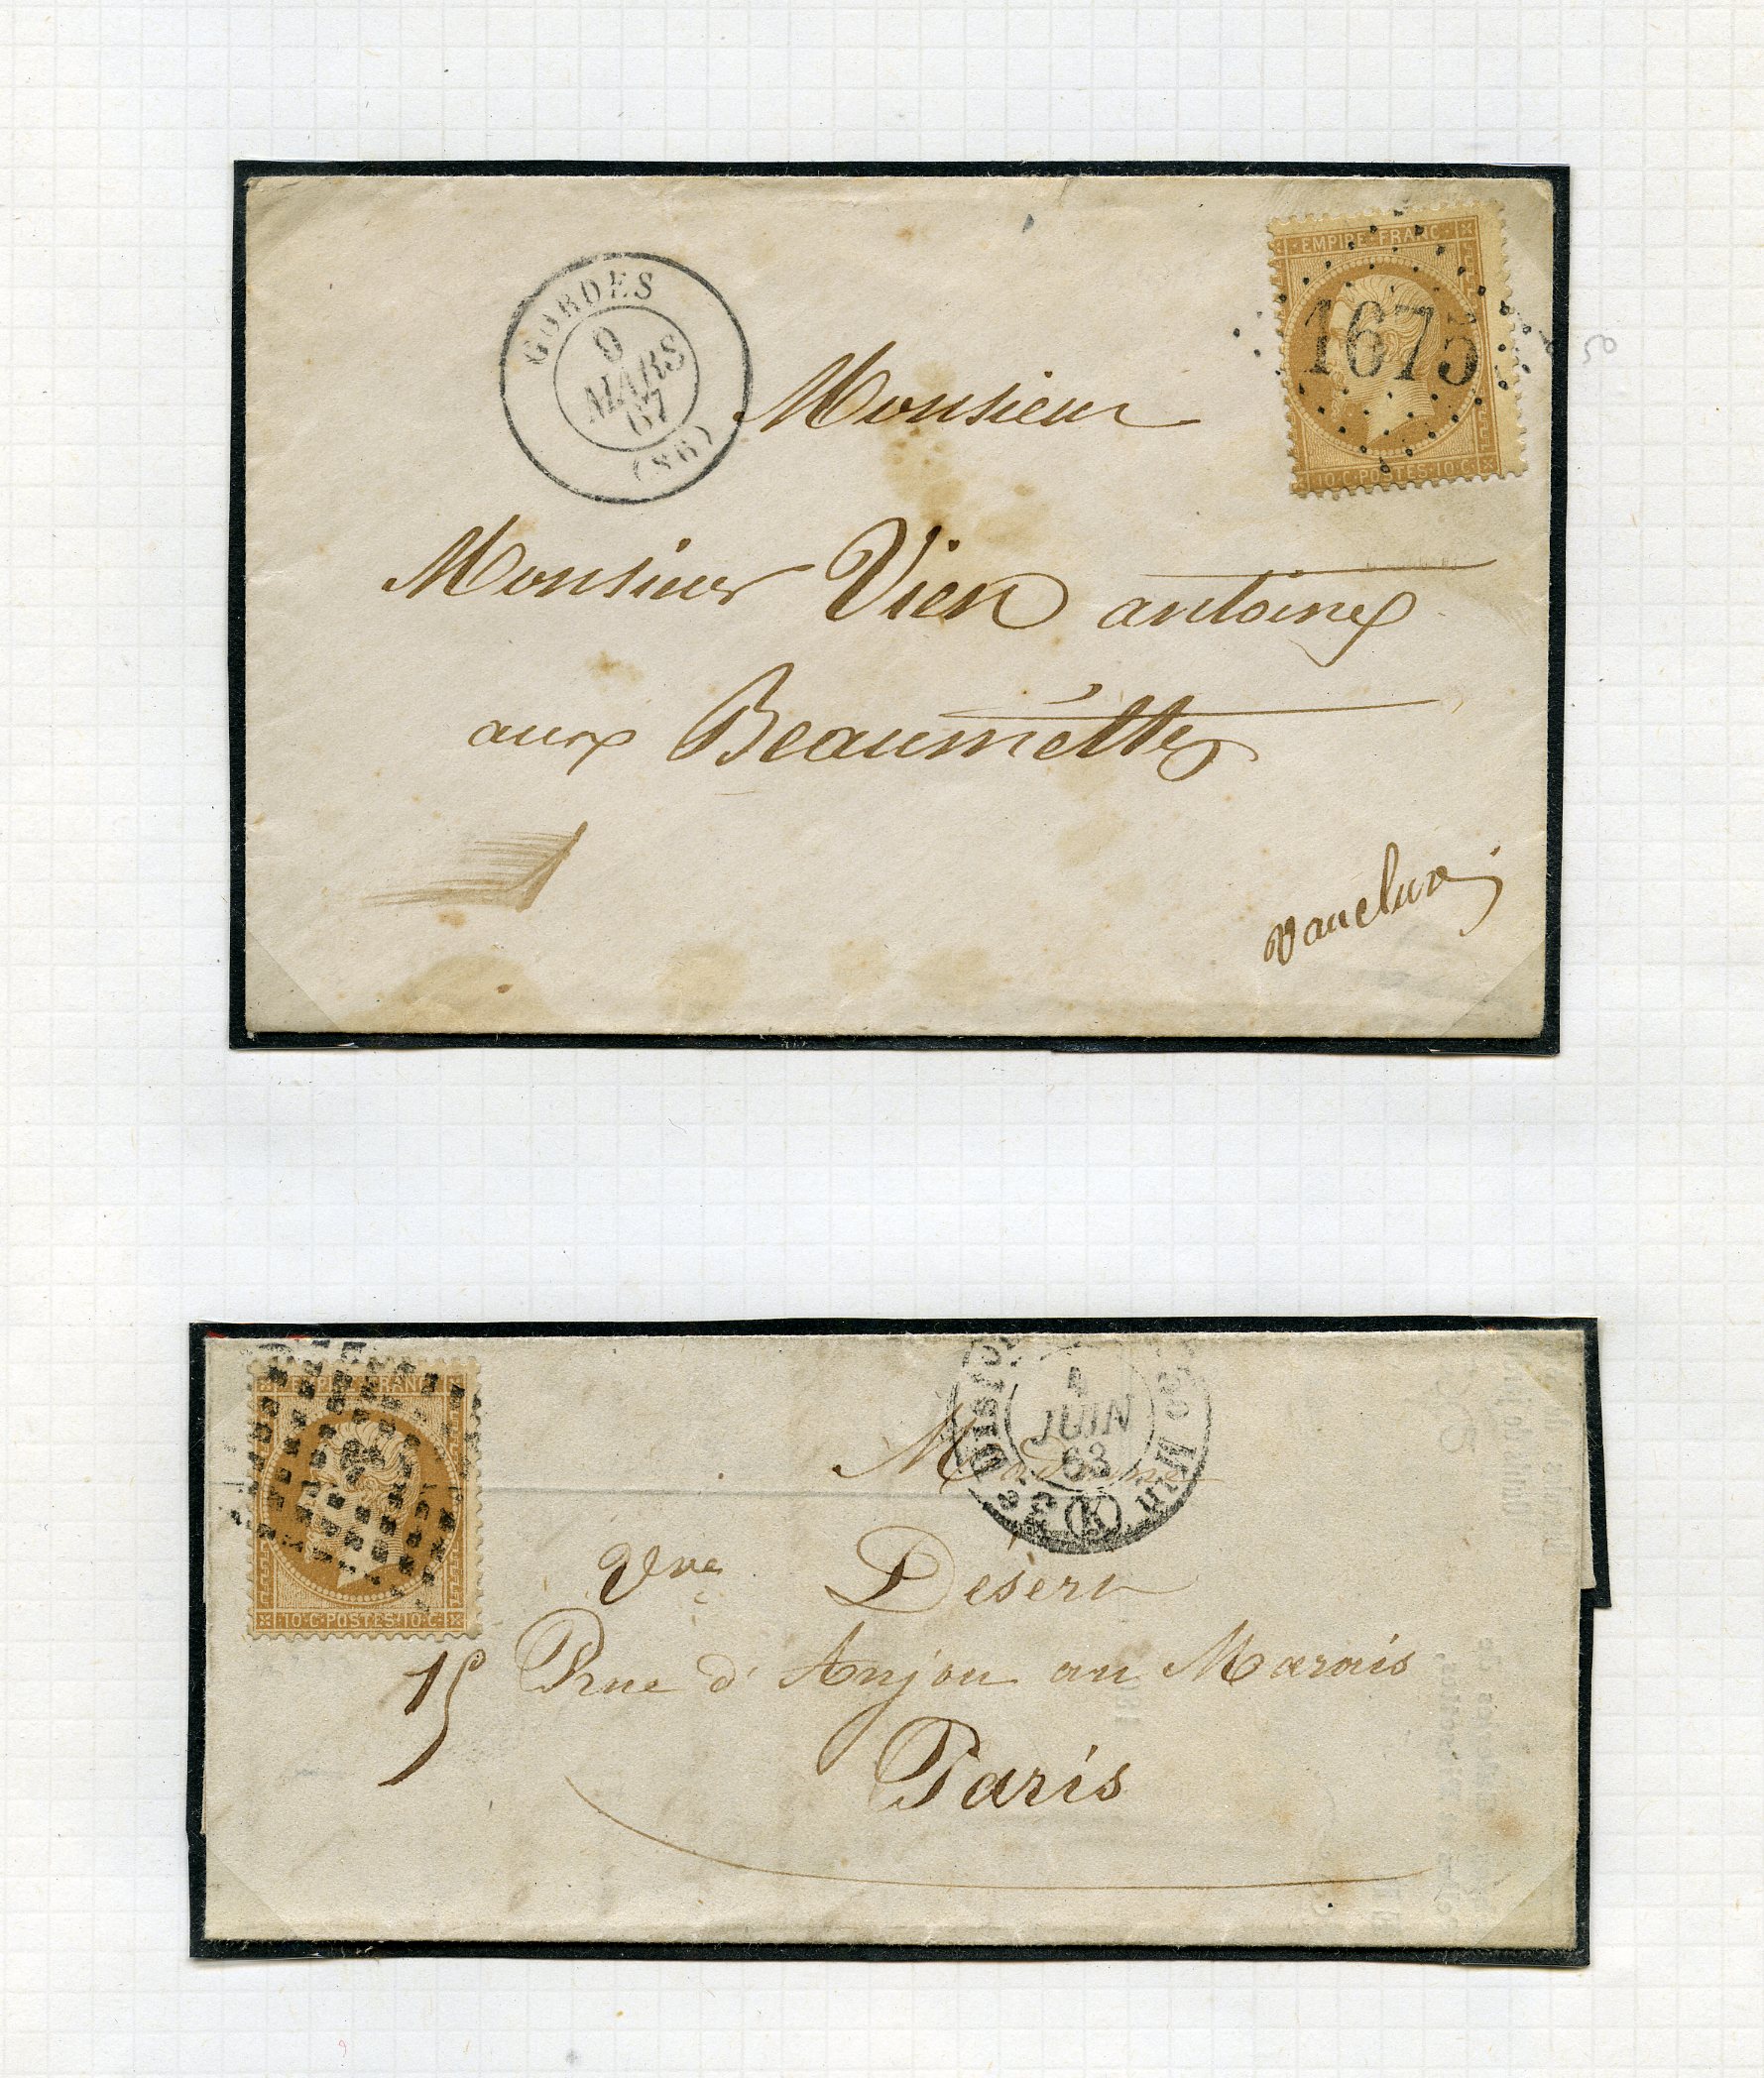 GORDES
9
MARS
67
(86)
EMPIRE FRANC
1675
10 C POSTES 10 C
50
Monsieur
Monsieur Vien antoine
aux Beaumettes
Vaucluse
EMPIRE FRANC
10 C POSTES 10 C
JUIN
63
(K)
Madame
Vve Désert
15 Rue d'Anjou au Marais
Paris